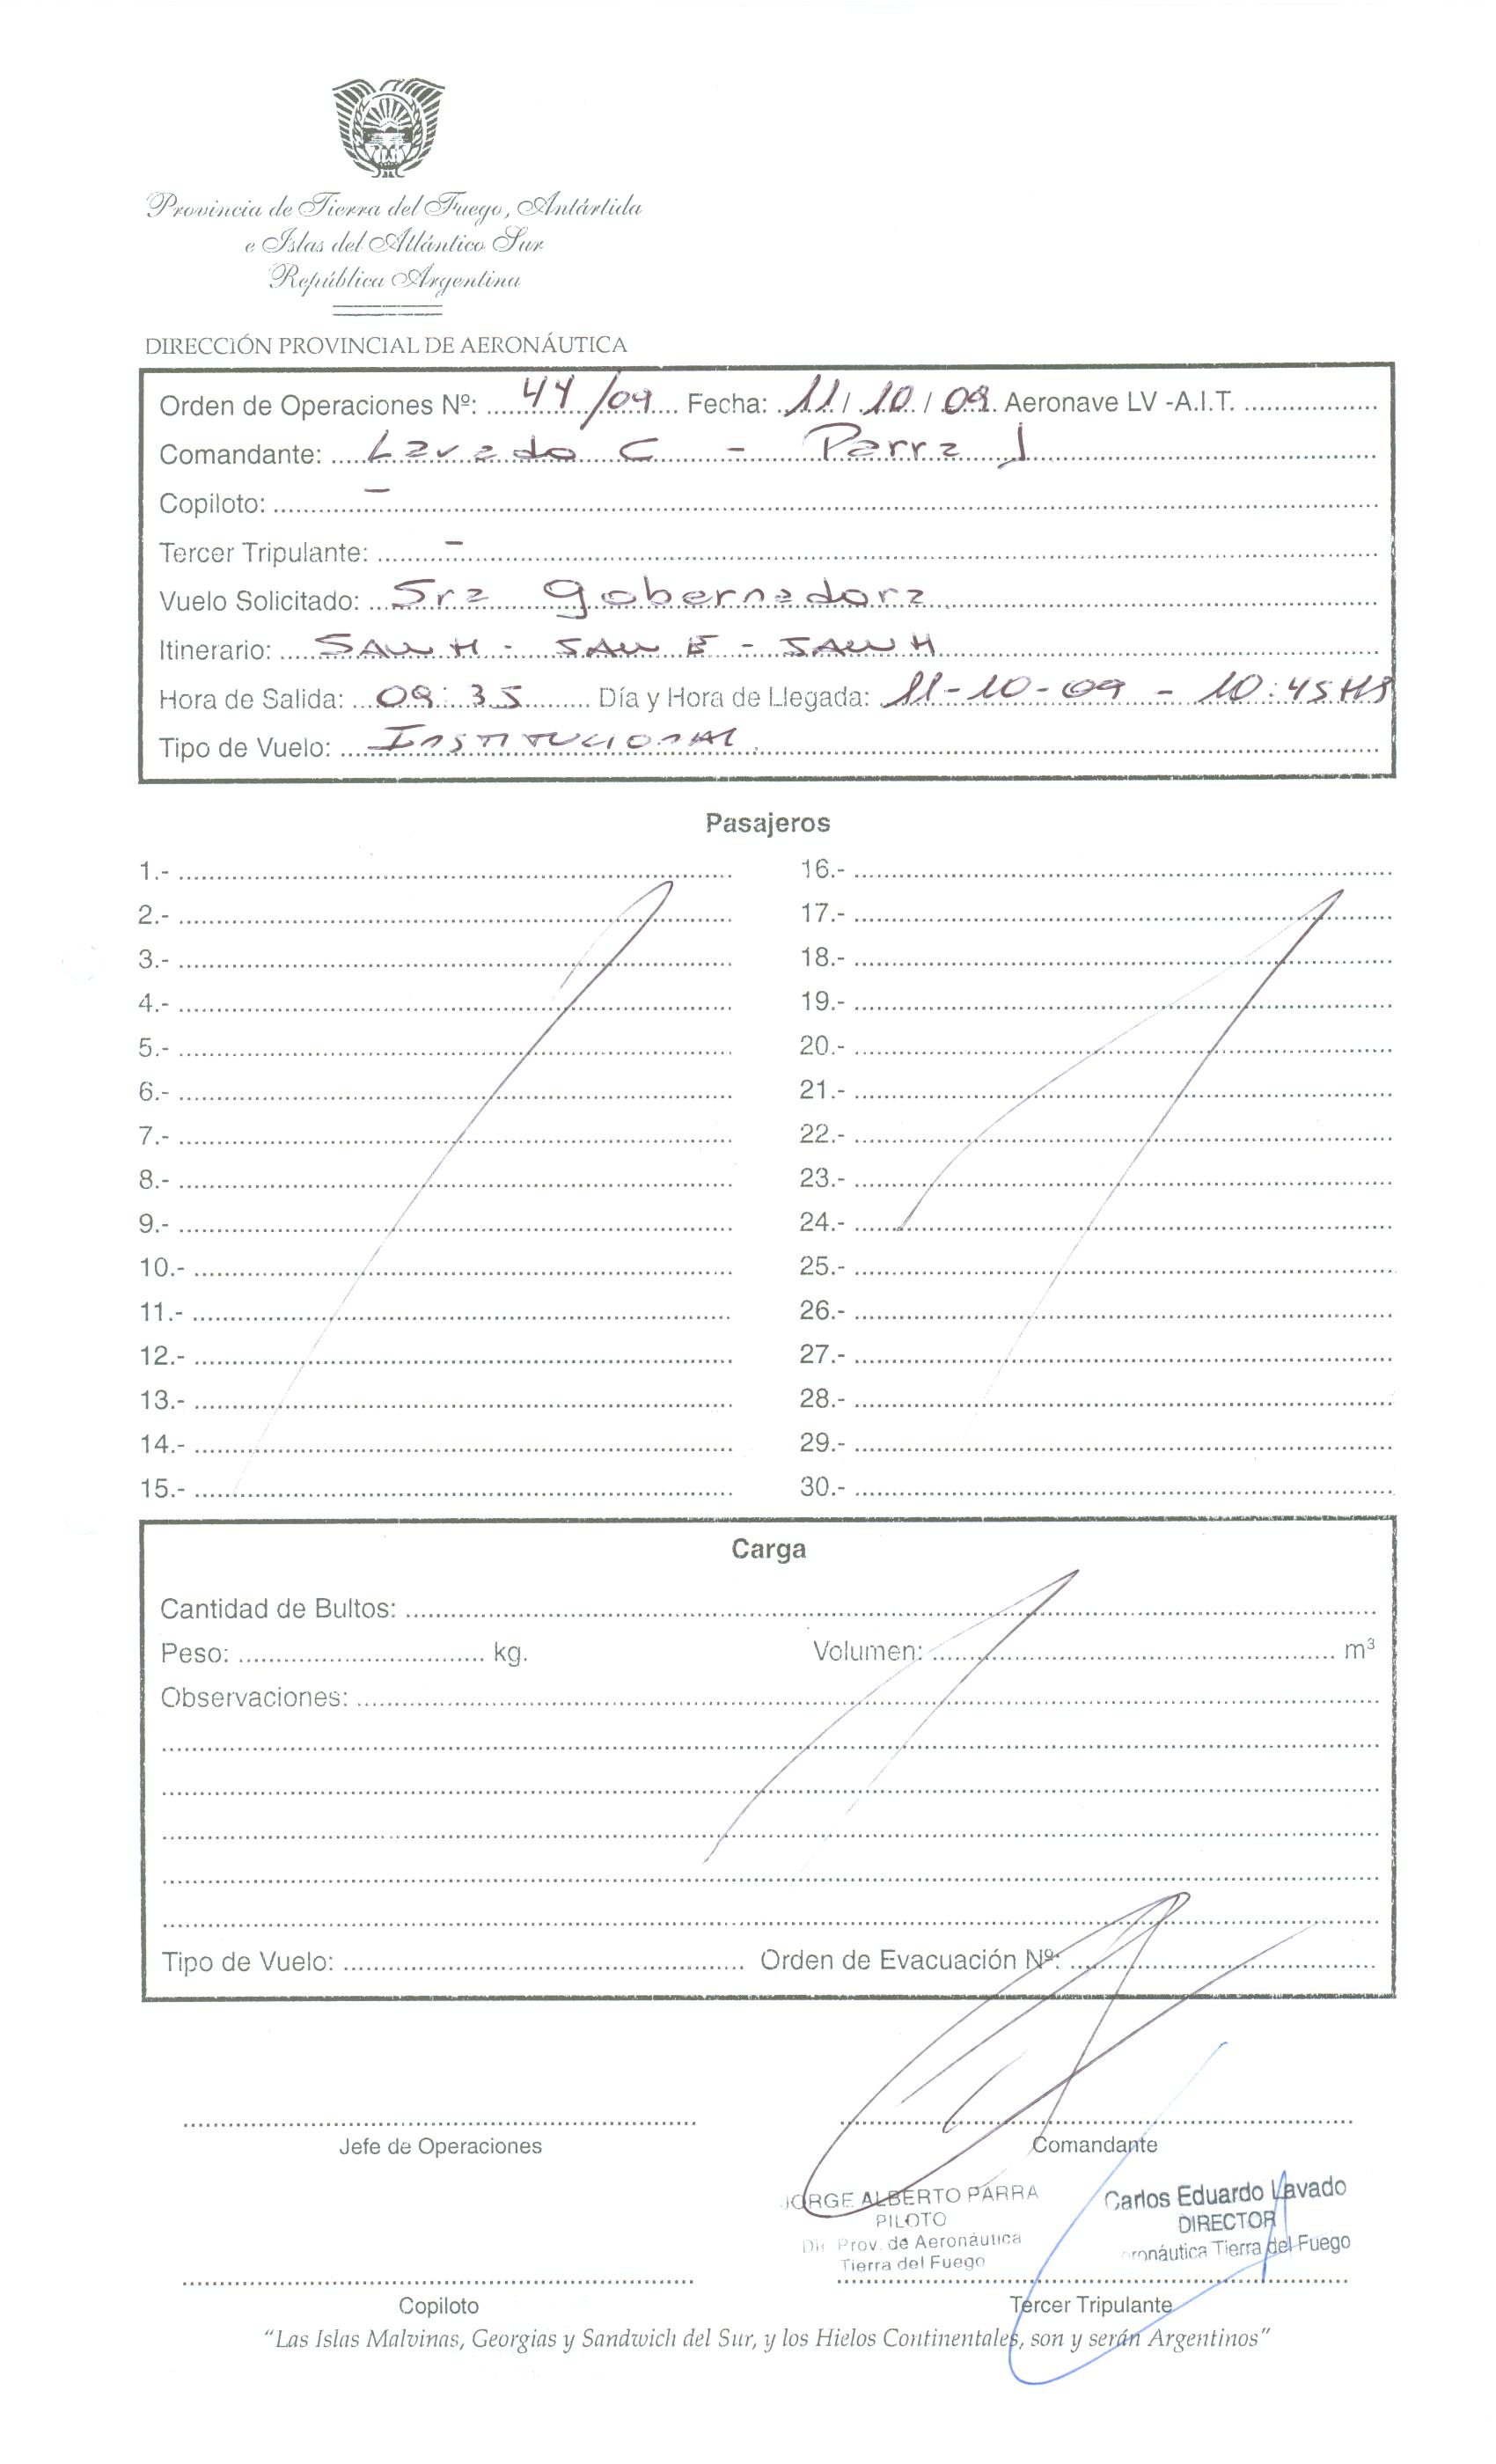 Provincia de Tierra del Fuego, Antártida
e Islas del Atlántico Sur
República Argentina
DIRECCIÓN PROVINCIAL DE AERONÁUTICA
Orden de Operaciones Nº: 44/09 Fecha: 11/10/09 Aeronave LV -A.I.T.
Comandante: Lavado C - Parra J
Copiloto: -
Tercer Tripulante: -
Vuelo Solicitado: Sra Gobernadora
Itinerario: SAWH - SAWE - SAWH
Hora de Salida: 09:35 Día y Hora de Llegada: 11-10-09 - 10:45 HS
Tipo de Vuelo: Institucional.
Pasajeros
1.- 16.-
2.- 17.-
3.- 18.-
4.- 19.-
5.- 20.-
6.- 21.-
7.- 22.-
8.- 23.-
9.- 24.-
10.- 25.-
11.- 26.-
12.- 27.-
13.- 28.-
14.- 29.-
15.- 30.-
Carga
Cantidad de Bultos:
Peso: kg. Volumen: m³
Observaciones:
Tipo de Vuelo: Orden de Evacuación Nº:
Jefe de Operaciones Comandante
JORGE ALBERTO PARRA
PILOTO
Dir. Prov. de Aeronáutica
Tierra del Fuego
Carlos Eduardo Lavado
DIRECTOR
ronáutica Tierra del Fuego
Copiloto Tercer Tripulante
“Las Islas Malvinas, Georgias y Sandwich del Sur, y los Hielos Continentales, son y serán Argentinos”